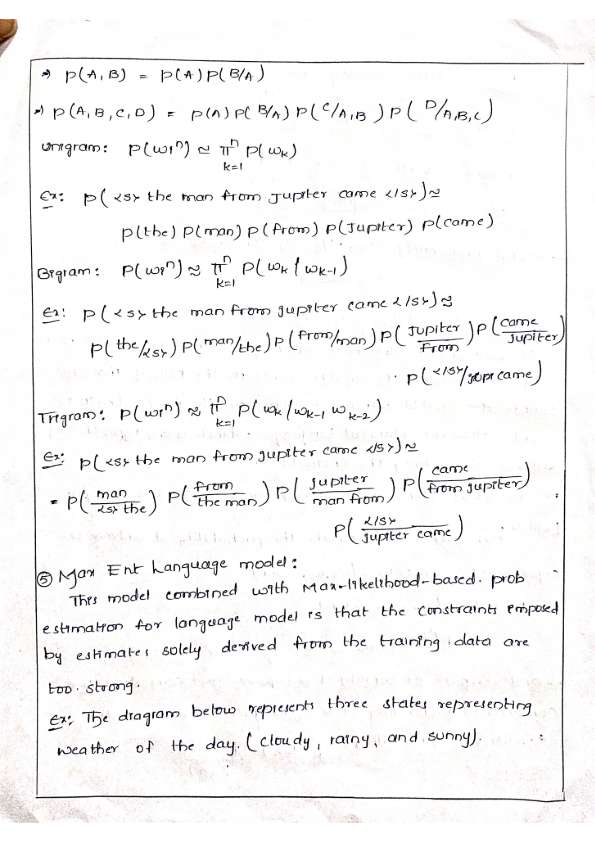 → P(A,B) = P(A)P(B/A)
→ P(A,B,C,D) = P(A)P(B/A) P(C/A,B) P(D/A,B,C)
Unigram: P(w1ⁿ) ≈ πⁿk=1 P(wk)
Ex: P(<s> the man from Jupiter came </s>)≈
P(the) P(man) P(from) P(Jupiter) P(came)
Bigram: P(w1ⁿ) ≈ πⁿk=1 P(wk/wk-1)
Ex: P(<s> the man from jupiter came </s>)≈
P(the/<s>) P(man/the) P(from/man) P(Jupiter/from) P(came/Jupiter)
P(</s>/came)
Trigram: P(w1ⁿ) ≈ πⁿk=1 P(wk/wk-1 wk-2)
Ex: P(<s> the man from jupiter came </s>)≈
= P(man/<s> the) P(from/the man) P(jupiter/man from) P(came/from jupiter)
P(</s>/jupiter came)
⑤ Max Ent Language model:
This model combined with Max-likelihood-based prob
estimation for language model is that the constraints imposed
by estimates solely derived from the training data are
too strong.
Ex: The diagram below represents three states representing
weather of the day. (cloudy, rainy, and sunny).